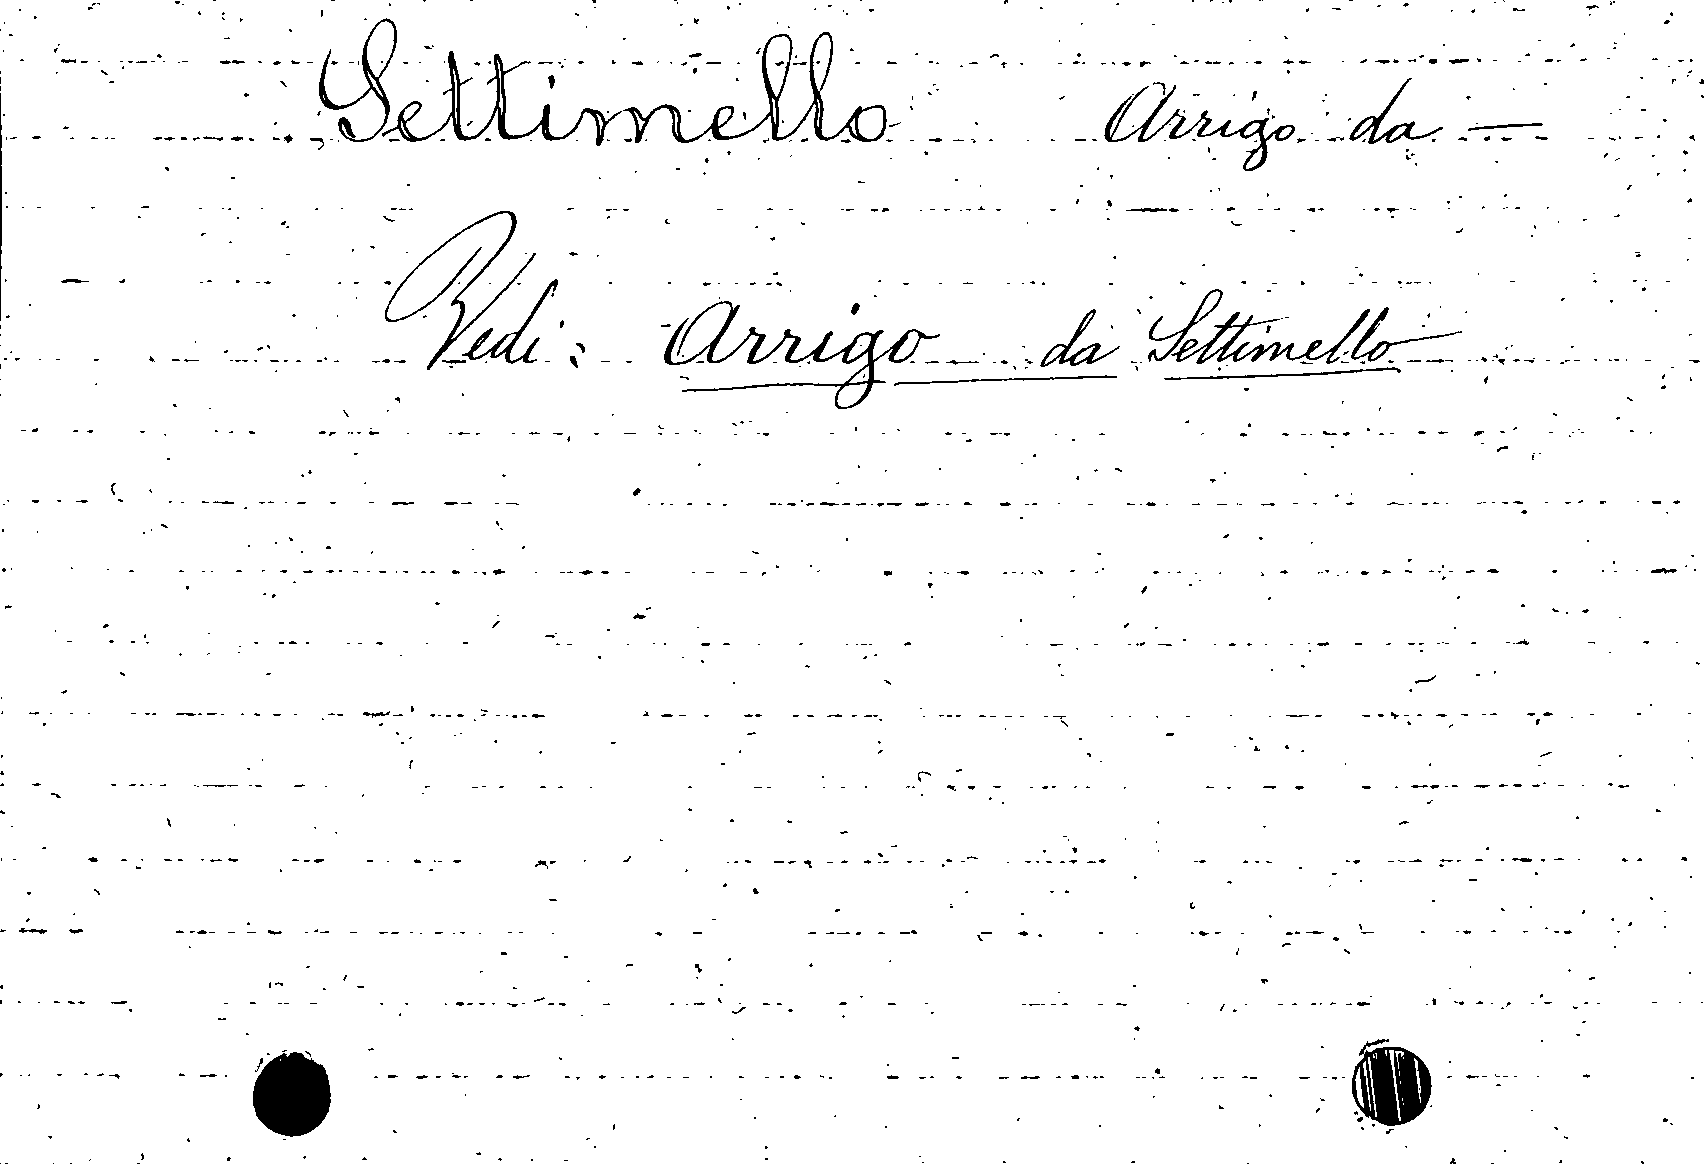 Settimello Arrigo da —
Vedi: Arrigo da Settimello